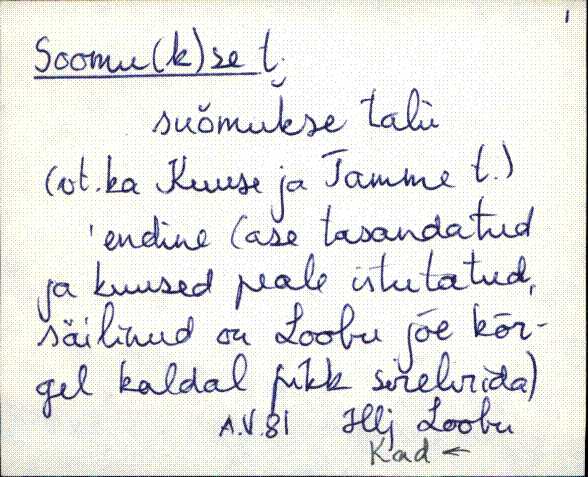 1
Soomu(k)se t.
suŏmukse talu
(vt. ka Kuuse ja Tamme t.)
'endine (ase tasandatud
ja kuused peale istutatud,
säilinud on Loobu jõe kõr-
gel kaldal pikk sirelirida)
A.V.81 Hlj Loobu
Kad ←